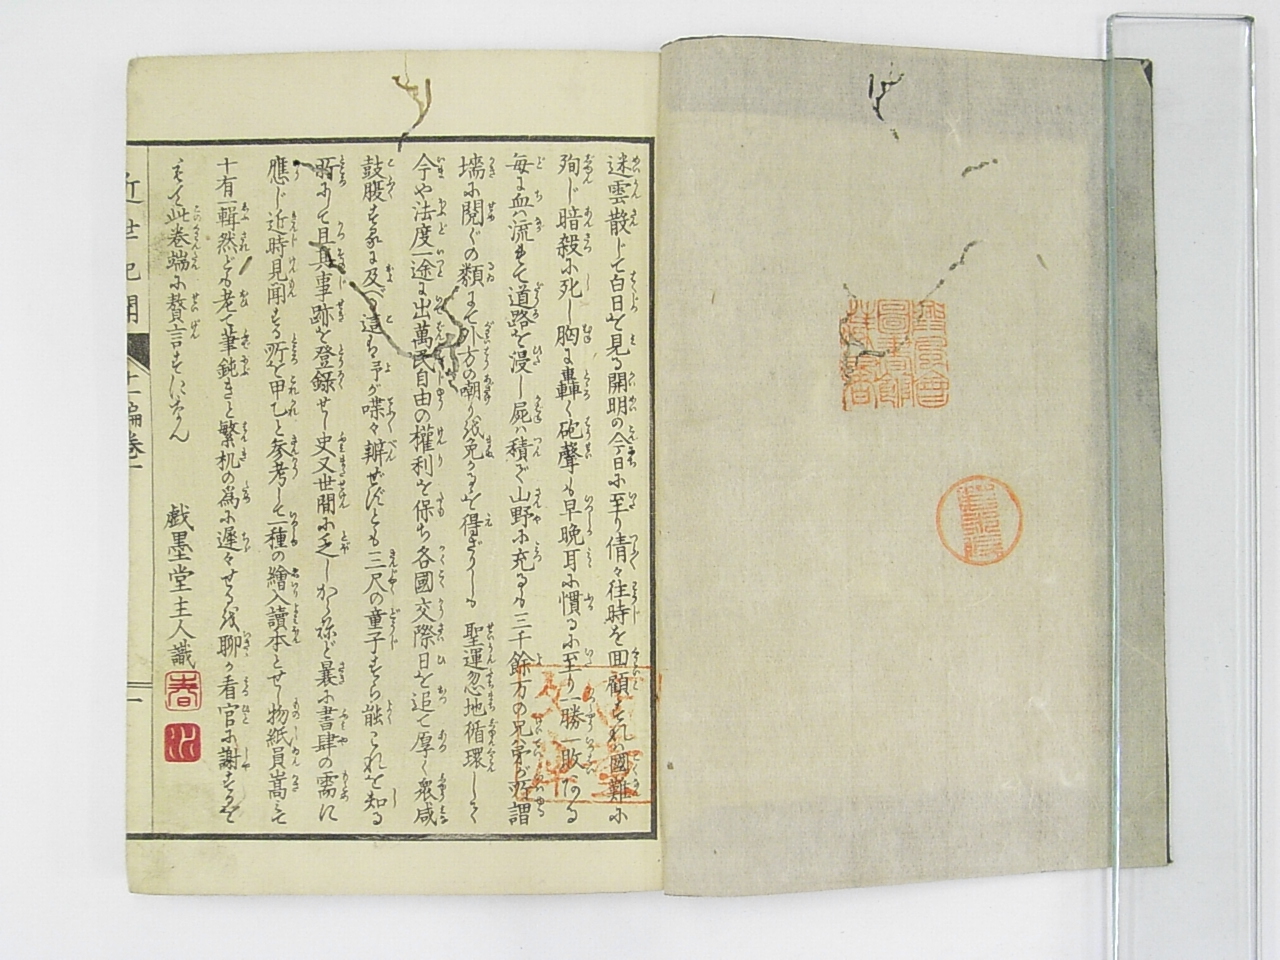 迷雲散じて白日を見る開明の今日に至り倩々往時を回顧すれバ國難に
殉じ暗殺に死し胸に轟く砲聲も早晩耳に慣るゝに至り一勝一敗ある
毎に血ハ流れて道路を浸し屍ハ積で山野に充るも三千餘万の兄弟が所謂
墻に鬩ぐの類にて外方の嘲りを免かるゝを得ざりしも聖運忽地循環して
今や法度一途に出萬民自由の權利を保ち各國交際日を追て厚く衆咸
鼓腹する に及べり這ハ予が喋々辯ぜずとも三尺の童子すら能これを知る
所にて且其事跡を登録せし史又世間に乏しからねど曩に書肆の需に
應じ近時見聞する所を甲乙と参考して一種の繪入讀本とせし物紙員嵩みて
十有一輯然ども老て筆鈍きと繁机の為に遅々せるを聊か看官に謝するを
もて此巻端に贅言すになん
戯墨堂主人識
春
水
近世紀聞
十一編巻一
一